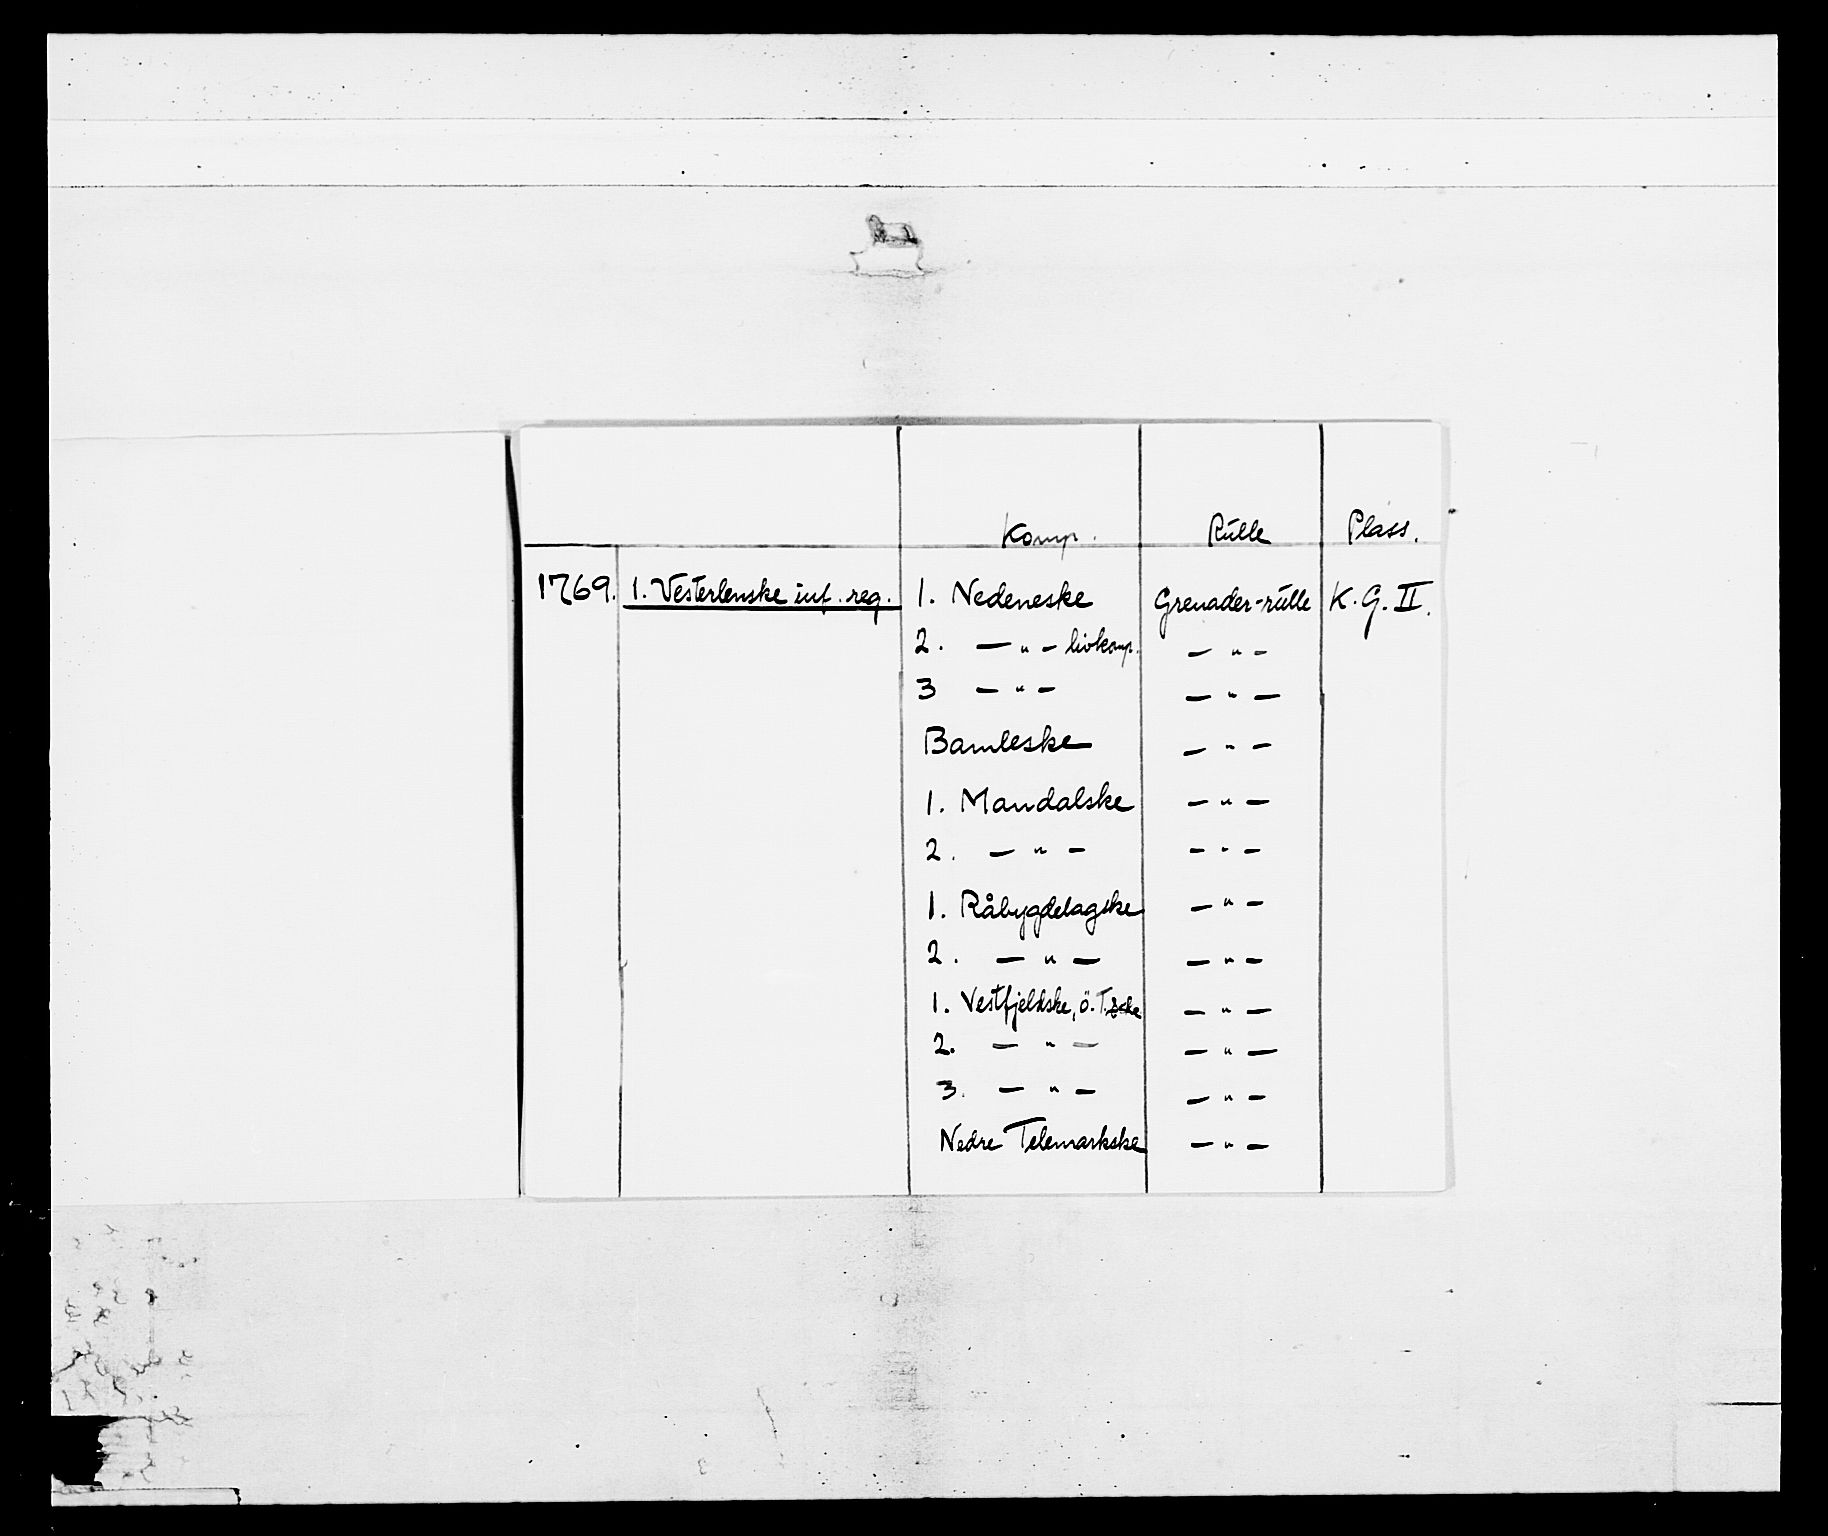 Komp. Rulle Plass.
1769. 1. Vesterlenske inf. reg. 1. Nedeneske Grenader-rulle K. G. II.
2. — " — livkomp. — " —
3 — " — — " —
Bamleske — " —
1. Mandalske — " —
2. — " — — " —
1. Råbygdelagske — " —
2. — " — — " —
1. Vestfjeldske, ö. — " —
2. — " — — " —
3. — " — — " —
Nedre Telemarkske — " —